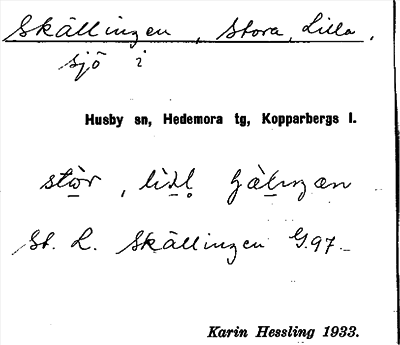 Skällingen, Stora, Lilla,
sjö i
Husby sn, Hedemora tg, Kopparbergs l.
stòr, lìsl
St. L. Skällingen G.97.
Karin Hessling 1933.